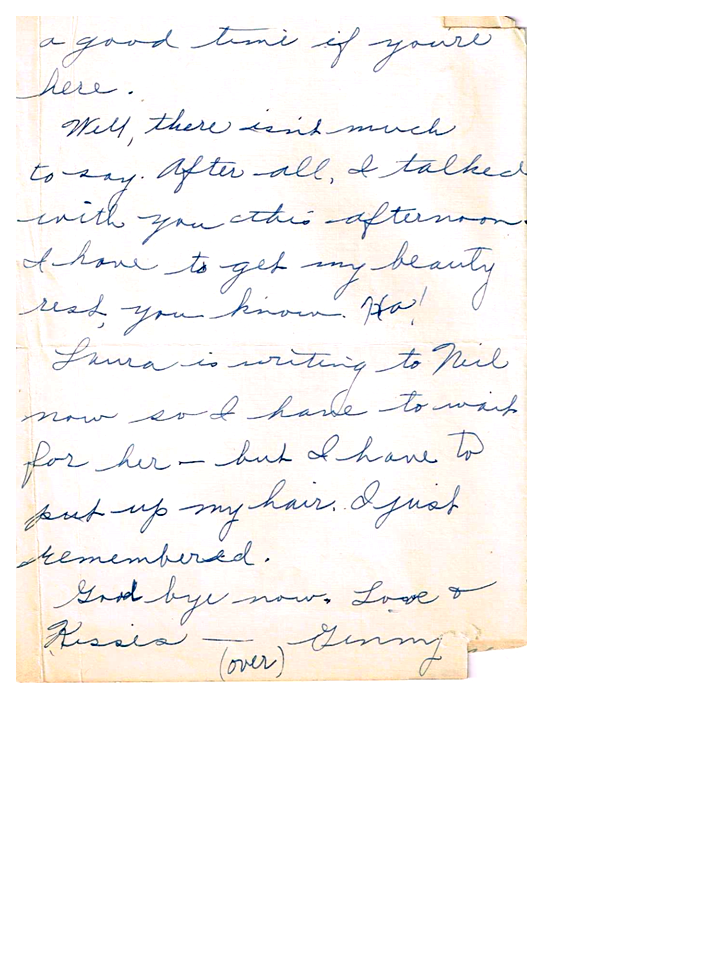 a good time if you're
here.
Well, there isn't much
to say. After all, I talked
with you this afternoon.
I have to get my beauty
rest, you know. Ha!
Laura is writing to Neil
now so I have to wait
for her – but I have to
put up my hair. I just
remembered.
Good bye now. Love &
Kisses — Ginny
(over)